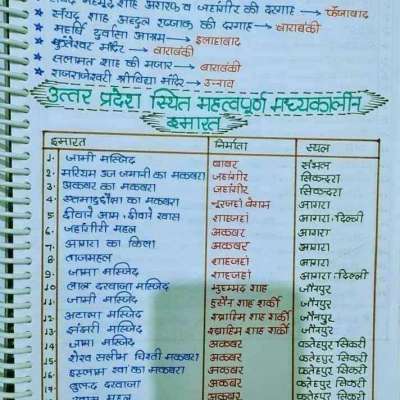 सैयद मेहमूद शाह अशरफ व जहांगीर की दरगाह → फैजाबाद
★ सैयद शाह अब्दुल रज्जाक की दरगाह → बाराबंकी
★ महर्षि दुर्वासा आश्रम → इलाहाबाद
★ कुन्तेश्वर मंदिर → बाराबंकी
★ सलामत शाह की मजार → बाराबंकी
★ राजराजेश्वरी श्रीविद्या मंदिर → उन्नाव
उत्तर प्रदेश स्थित महत्वपूर्ण मध्यकालीन
इमारत
इमारत निर्माता स्थल
1. जामी मस्जिद बाबर संभल
2. मरियम उज जमानी का मकबरा जहांगीर सिकन्दरा
3. अकबर का मकबरा जहांगीर सिकन्दरा
4. एत्मादुद्दौला का मकबरा नूरजहां बेगम आगरा
5. दीवाने आम, दीवाने खास शाहजहां आगरा, दिल्ली
6. जहांगीरी महल अकबर आगरा
7. आगरा का किला अकबर आगरा
8. ताजमहल शाहजहां आगरा
9. जामा मस्जिद शाहजहां आगरा, दिल्ली
10. लाल दरवाजा मस्जिद मुहम्मद शाह जौनपुर
11. जामी मस्जिद हुसैन शाह शर्की जौनपुर
12. अटाला मस्जिद इब्राहिम शाह शर्की जौनपुर
13. झंझरी मस्जिद इब्राहिम शाह शर्की जौनपुर
14. जामा मस्जिद अकबर फतेहपुर सिकरी
15. शेख सलीम चिश्ती मकबरा अकबर फतेहपुर सिकरी
16. इस्लाम खां का मकबरा अकबर फतेहपुर सिकरी
17. बुलन्द दरवाजा अकबर फतेहपुर सिकरी
महल अकबर फतेहपुर सिकरी